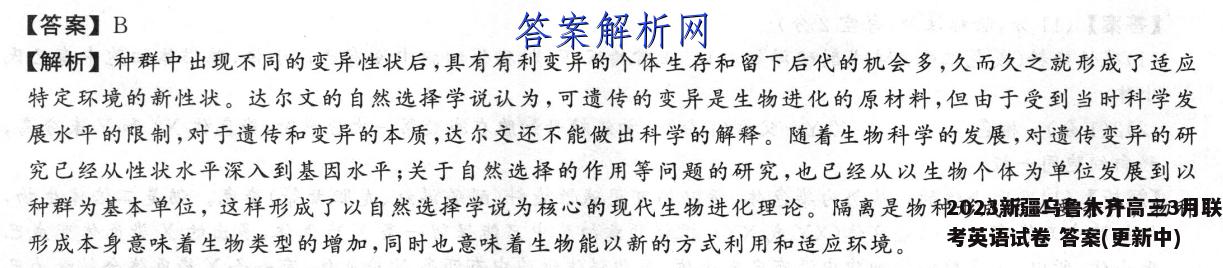 【答案】B
答案解析网
【解析】种群中出现不同的变异性状后,具有有利变异的个体生存和留下后代的机会多,久而久之就形成了适应
特定环境的新性状。达尔文的自然选择学说认为,可遗传的变异是生物进化的原材料,但由于受到当时科学发
展水平的限制,对于遗传和变异的本质,达尔文还不能做出科学的解释。随着生物科学的发展,对遗传变异的研
究已经从性状水平深入到基因水平;关于自然选择的作用等问题的研究,也已经从以生物个体为单位发展到以
种群为基本单位,这样形成了以自然选择学说为核心的现代生物进化理论。隔离是物种
2023新疆乌鲁木齐高三3月联
考英语试卷 答案(更新中)
形成本身意味着生物类型的增加,同时也意味着生物能以新的方式利用和适应环境。